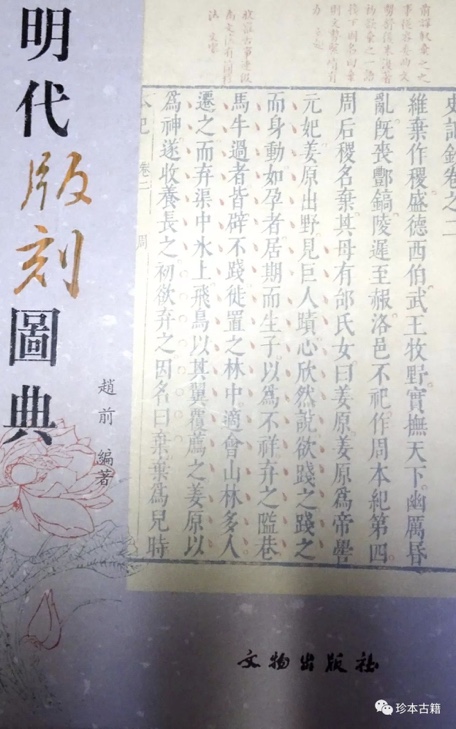 明代版刻圖典
趙前 編著
史記鈔卷之二
維棄作稷盛德西伯武王牧野實撫天下幽厲昏
亂既喪酆鎬陵遲至赧洛邑不祀作周本紀第四
周后稷名棄其母有邰氏女曰姜原姜原爲帝嚳
元妃姜原出野見巨人蹟心欣然說欲踐之踐之
而身動如孕者居期而生子以爲不祥弃之隘巷
馬牛過者皆辟不踐徙置之林中適會山林多人
遷之而弃渠中氷上飛鳥以其翼覆薦之姜原以
爲神遂收養長之初欲弃之因名曰棄棄爲兒時
本紀 卷二 周
文物出版社
珍本古籍